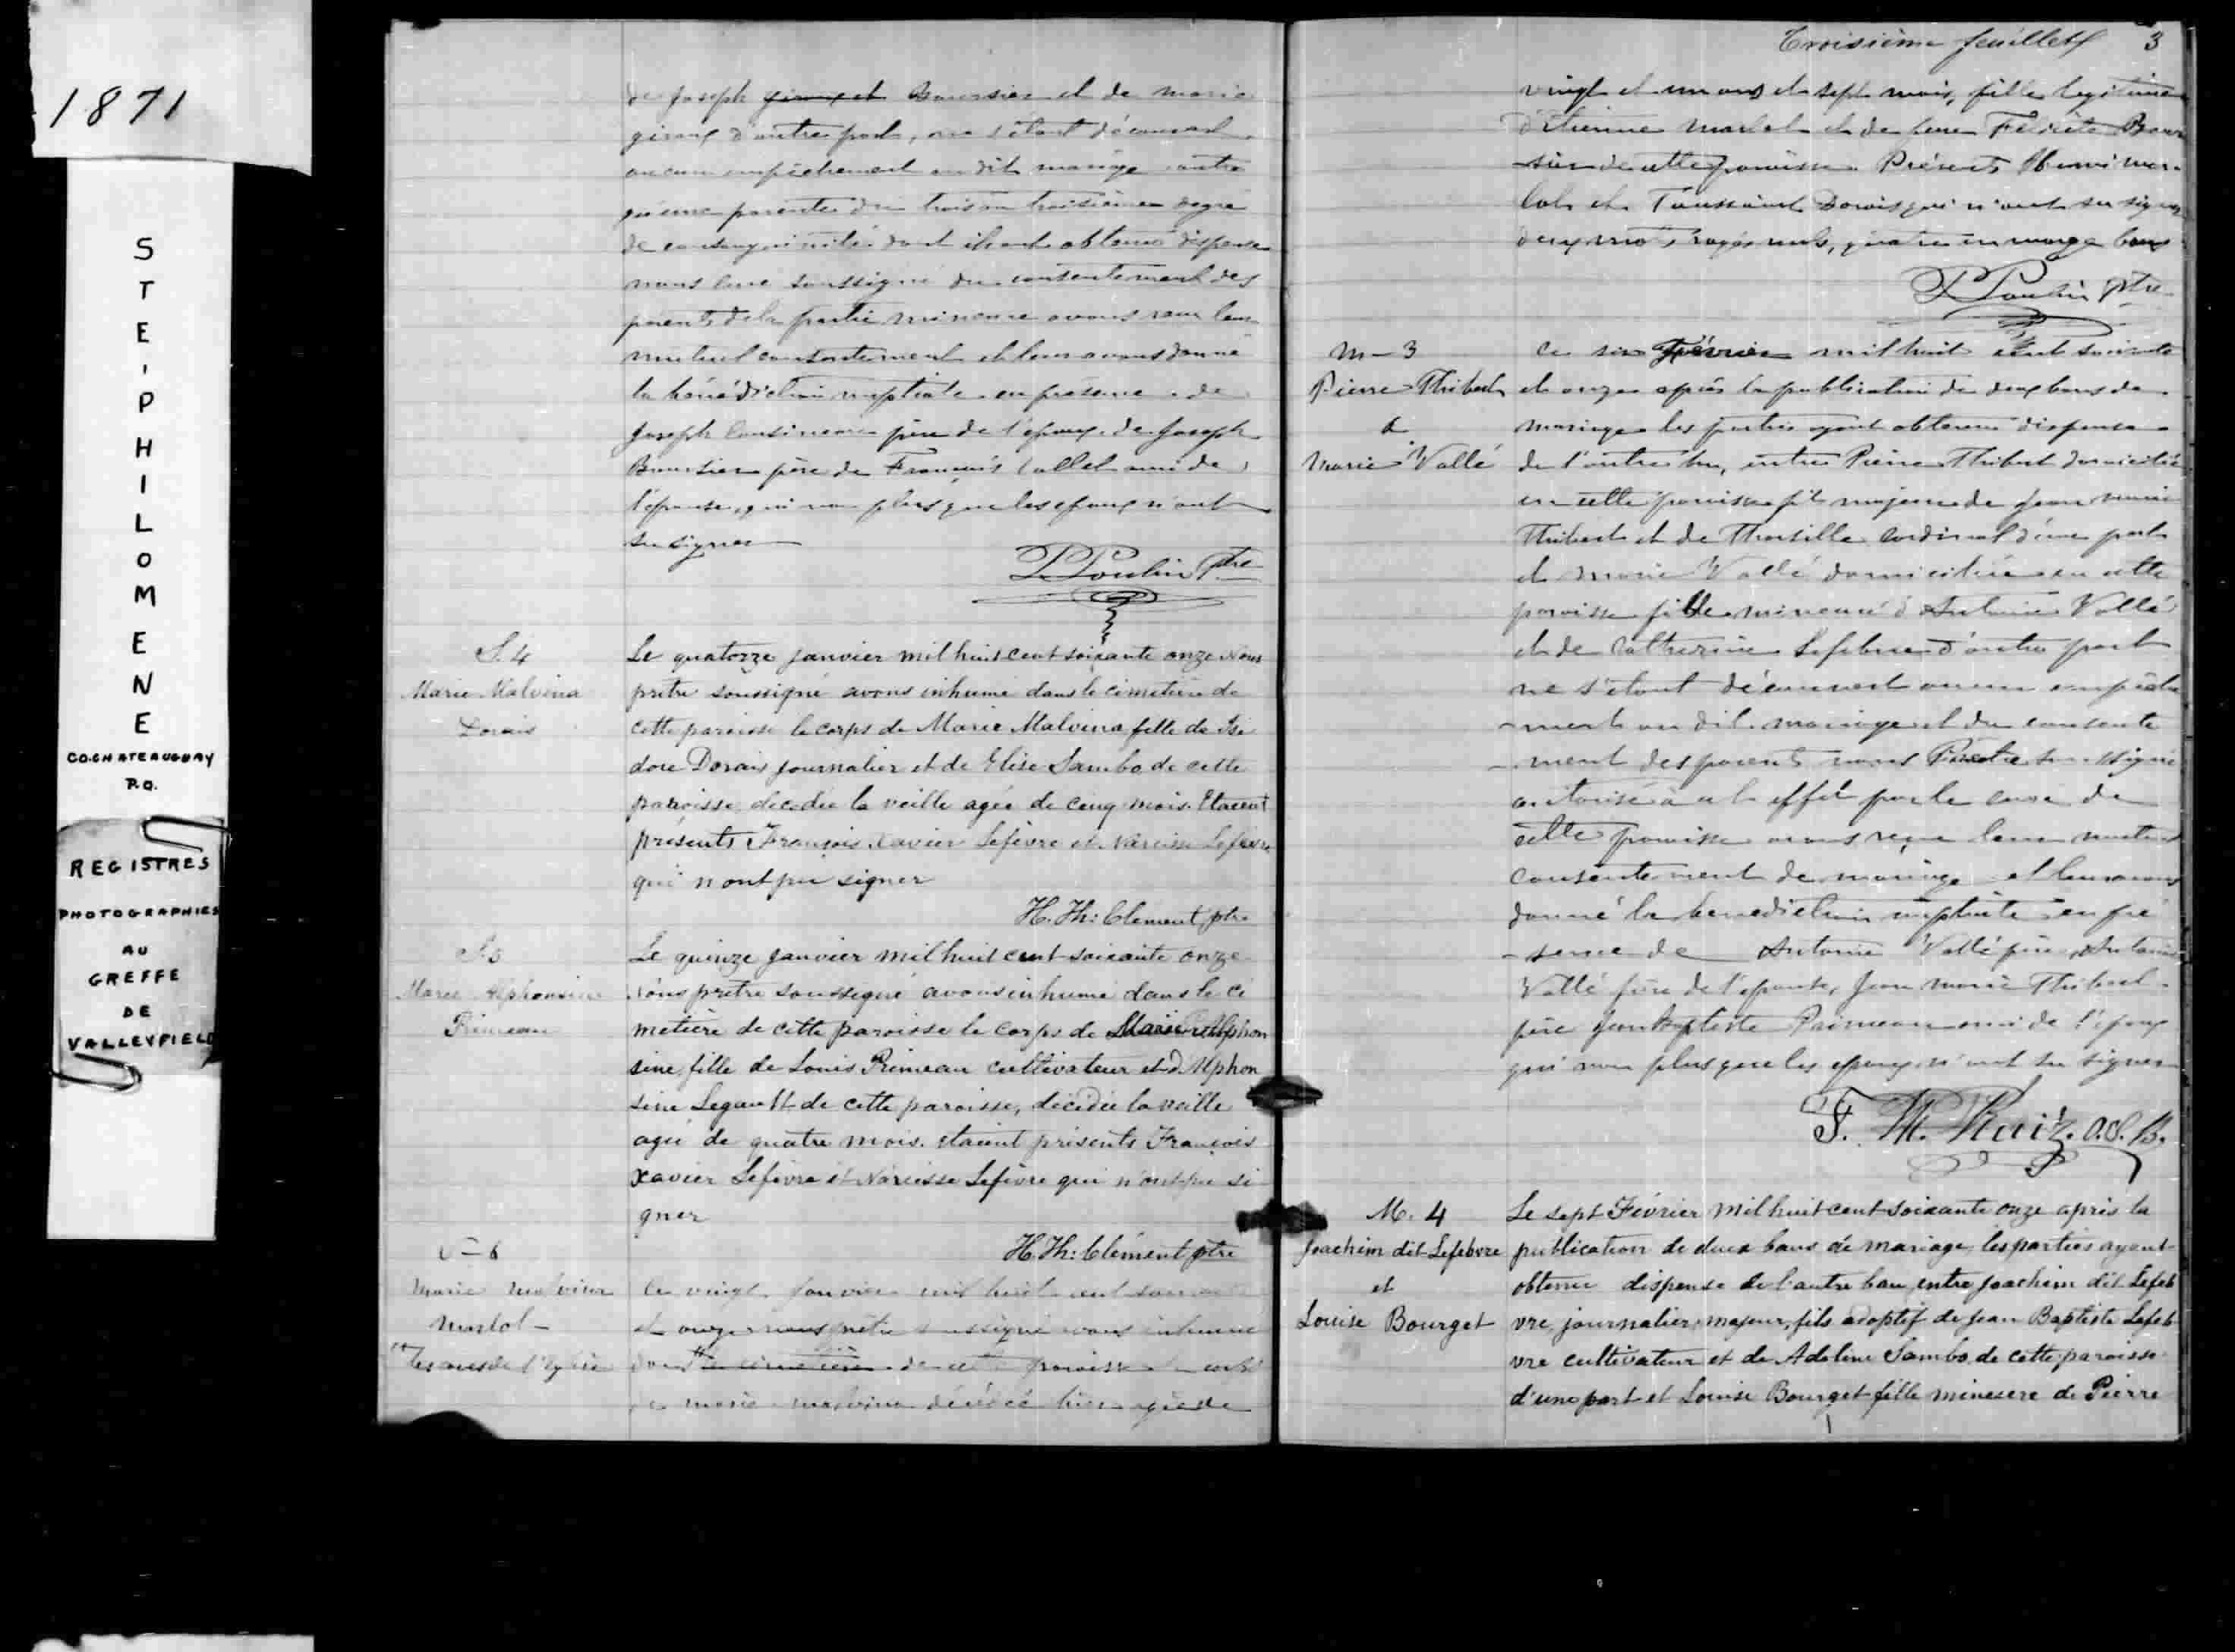 1871
STE-PHILOMENE
CO. CHATEAUGUAY
P.Q.
REGISTRES
PHOTOGRAPHIES
AU
GREFFE
DE
VALLEYFIELD
de Joseph Boursier et de marie
giroux d'autre part, ne s'étant découvert
aucun empêchement au dit mariage outre
qu'une parenté du trois au troisième degré
de consanguinité dont ils ont obtenu dispense
nous curé soussigné du consentement des
parents de la partie mineure avons reçu leur
mutuel consentement et leur avons donné
la bénédiction nuptiale en présence de
Joseph père de l'époux de Joseph
Boursier père de François ami de
l'épouse, qui non plus que les époux n'ont
su signer
P. Poulin Ptre
S. 4
Marie Malvina
Dorais
Le quatorze janvier mil huit cent soixante onze Nous
prêtre soussigné avons inhumé dans le cimetière de
cette paroisse le corps de Marie Malvina fille de Isi
dore Dorais journalier et de Elise Sambo de cette
paroisse, décédée la veille agée de cinq mois. Etaient
présents François Xavier Lefèvre et Narcisse Lefèvre
qui n'ont pu signer
H. Th: Clement ptre
S. 5
Marie Alphonsine
Primeau
Le quinze janvier mil huit cent soixante onze
Nous prêtre soussigné avons inhumé dans le ci
metière de cette paroisse le corps de Marie Alphon
sine, fille de Louis Primeau cultivateur et d'Alphon
sine Legault de cette paroisse, décédée la veille
agée de quatre mois. étaient présents François
Xavier Lefèvre et Narcisse Lefèvre qui n'ont pu si
gner
H. Th: Clément ptre
S - 6
Marie malvina
Martol
de l'Eglise
Ce vingt janvier mil huit cent soixante
et onze nous prêtre soussigné avons inhumé
dans le cimetière de cette paroisse le corps
de marie malvina décédé hier agée de
Troisième feuillet 3
vingt et un ans et sept mois, fille légitime
d'Etienne Martol et de feue Félicité Bour
sier de cette paroisse. Présents
et Toussaint Dorais qui n'ont su signer
deux mots rayés nuls, quatre en marge bons
P. Poulin Ptre
M - 3
Pierre Thibert
&
Marie Vallé
Ce six Février mil huit cent soixante
et onze après la publication de deux bans de
mariage les parties ayant obtenu dispense
de l'autre ban, entre Pierre Thibert domicilié
en cette paroisse fils majeur de Jean marie
Thibert et de Tharsille Cardinal d'une part
et marie Vallé domiciliée en cette
paroisse fille mineure d'Antoine Vallé
et de Catherine Lefebvre d'autre part
ne s'étant découvert aucun empêche
-ment au dit mariage et du consente
-ment des parents nous Prêtre soussigné
autorisé à cet effet par le curé de
cette paroisse avons reçu leur mutuel
consentement de mariage et leur avons
donné la bénédiction nuptiale en pré
-sence de Antoine Vallé père, Antoine
Vallé frère de l'épouse, Jean marie Thibert
père Jean Baptiste Primeau ami de l'époux
qui non plus que les époux n'ont su signer
F. M. Ruiz. O.S.B.
M. 4
Joachim dit Lefebvre
et
Louise Bourget
Le sept Février mil huit cent soixante onze après la
publication de deux bans de mariage, les parties ayant
obtenu dispense de l'autre ban, entre Joachim dit Lefeb
vre, journalier, majeur, fils adoptif de Jean Baptiste Lefeb
vre cultivateur et de Adeline Sambo de cette paroisse
d'une part et Louise Bourget fille mineure de Pierre